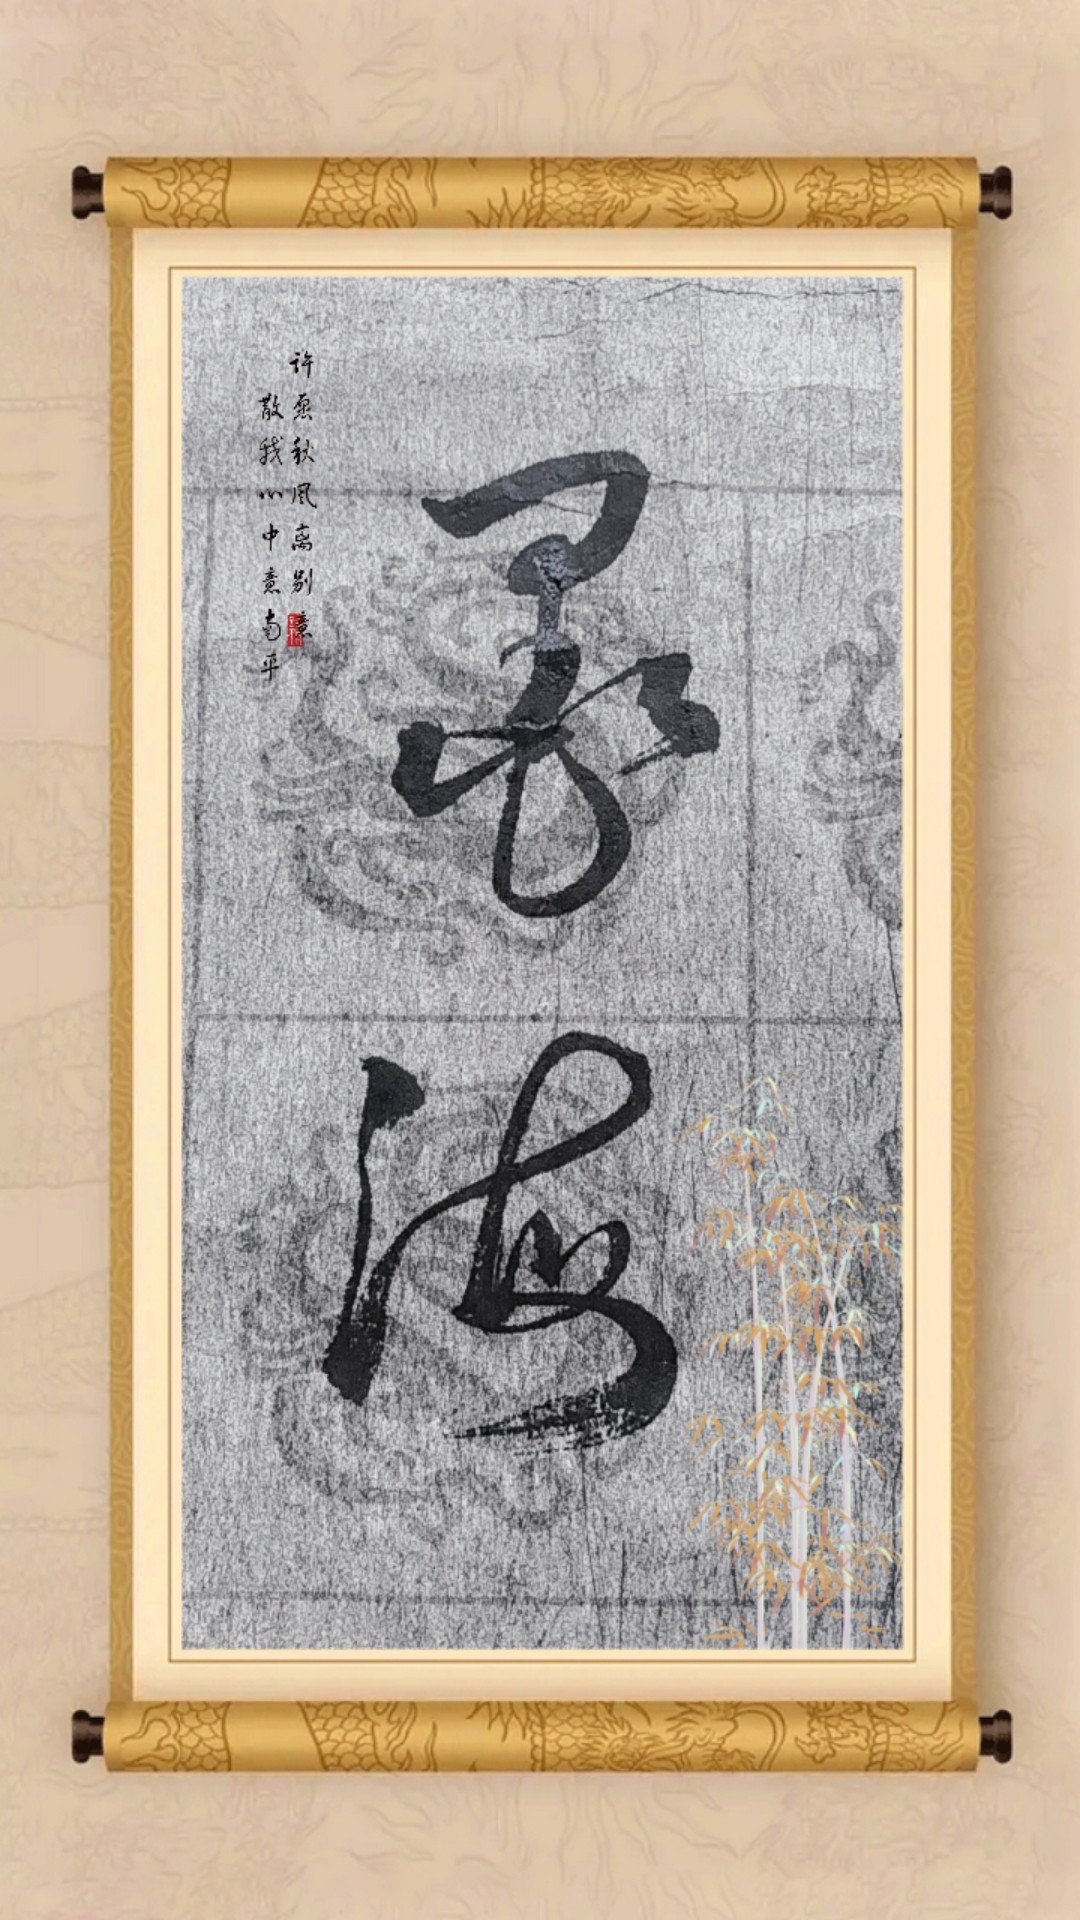 海
许愿秋风离别意
散我心中意南平